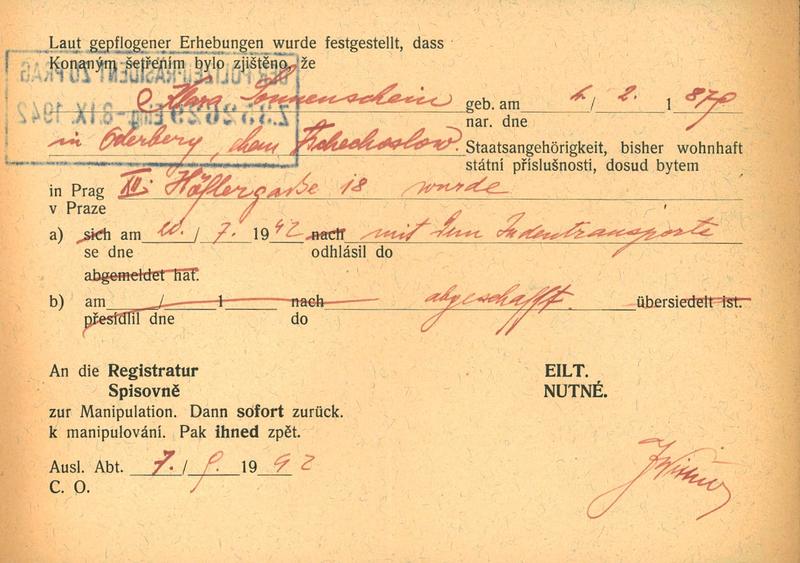 Laut gepflogener Erhebungen wurde festgestellt, dass
Konaným šetřením bylo zjištěno, že
DER POLIZEI-PRÄSIDENT ZU PRAG
Eing. -8.IX.1942
Klara Sonnenschein geb. am 2. 1 879
nar. dne
in Oderberg, ehem. Tschechoslow. Staatsangehörigkeit, bisher wohnhaft
státní příslušnosti, dosud bytem
in Prag XII. Höflergaße 18 wurde
v Praze
a) sich am 20. / 7. 19 42 nach mit dem Judentransporte
se dne odhlásil do
abgemeldet hat.
b) am / 1 nach abgeschafft. übersiedelt ist.
přesídlil dne do
An die Registratur EILT.
Spisovně NUTNÉ.
zur Manipulation. Dann sofort zurück.
k manipulování. Pak ihned zpět.
Ausl. Abt. 7. / 9. 19 42
C. O.